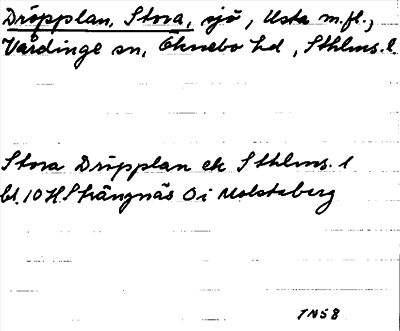 Dröpplan, Stora, sjö, Usta m.fl.,
Vårdinge sn, Öknebo hd, Sthlms. l.
Stora Dröpplan ek Sthlms. l
bl. 10 H Strängnäs Ö i Molstaberg
TN58